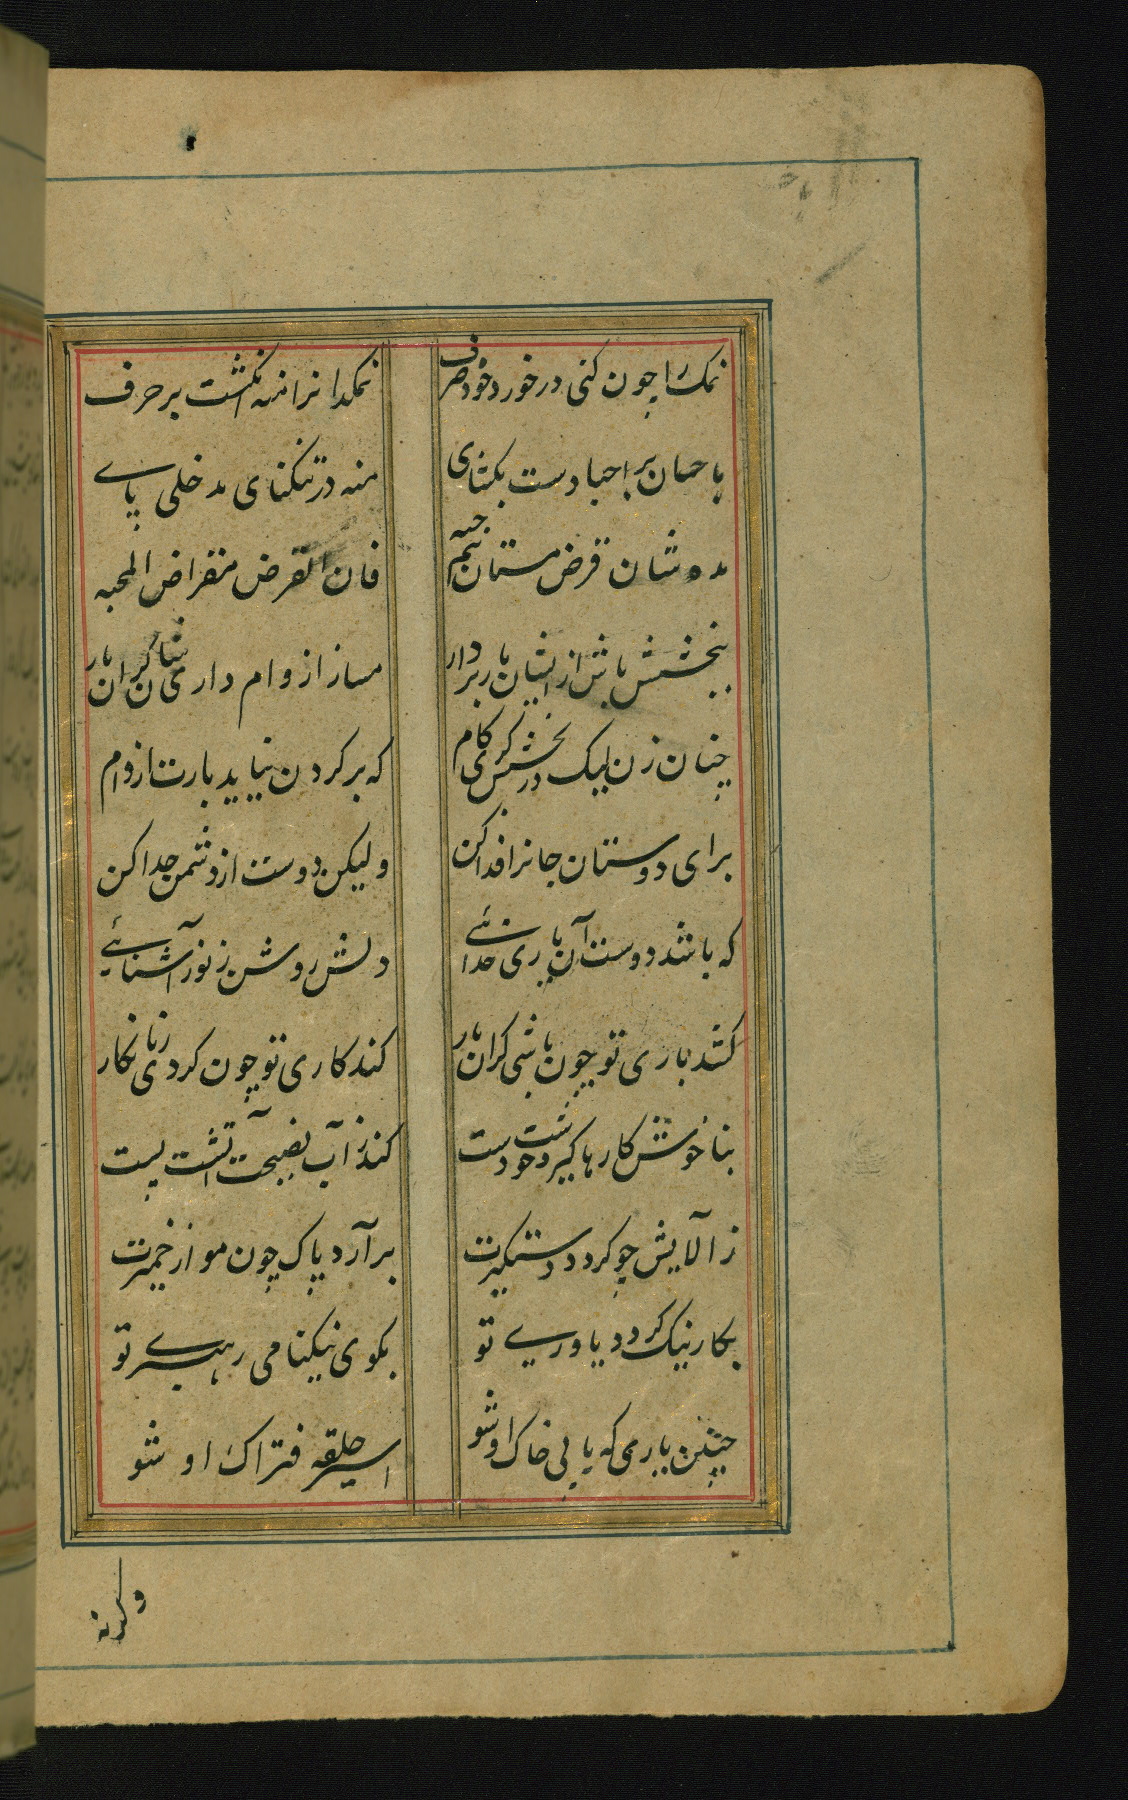 نمک را چون کنی در خورد خود صرف
نمکدانرا منه انگشت بر حرف
باحسان بر احبا دست بکشای
منه در تنکنای مدخلی پای
مدوشان قرض مستان نیم حبه
فان القرض مقراض المحبه
ببخشش باش ازیشان باربردار
مساز از وام داری شان کران بار
چنان زن لیک در بخشش کری کام
که بر کردن نیاید بارت از وام
برای دوستان جانرا فدا کن
ولیکن دوست از دشمن جدا کن
که باشد دوست آن یاری خدائے
دلش روشن ز نور آشنائے
کشد باری تو چون باشی کران بار
کند کاری تو چون کردی زیانکار
بناخوش کارها کیرد خودت دست
کند ز آب نصیحت آتشت پست
ز آلایش چو کردد دستکیرت
برآرد پاک چون مو از خمیرت
بکار نیک کردد یاوری تو
بکوی نیکنامی رهبری تو
چنین یاری که یابی خاک او شو
اسیر حلقه فتراک او شو
وکرنه